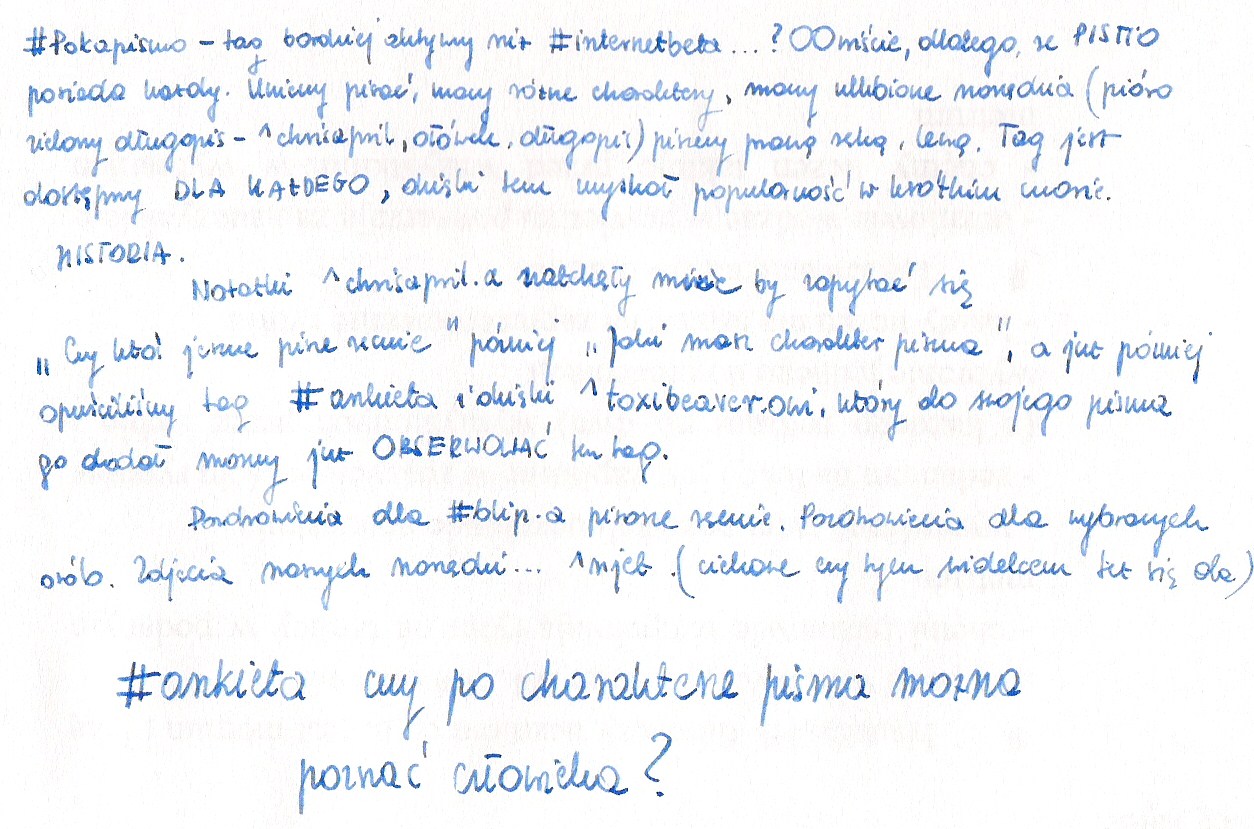 #Pokapismo – tag bardziej aktywny niż #internetbeta...? OOmście, dlatego, że PISMO
posiada każdy. Umiemy pisać, mamy różne charaktery, mamy ulubione narzędzia (pióro
zielony długopis – ^chrisapril, ołówek, długopis) piszemy prawą ręką, lewą. Tag jest
dostępny DLA KAŻDEGO, dzięki temu zyskał popularność w krótkim czasie.
HISTORIA.
Notatki ^chrisapril.a natchęły mnie by zapytać się
„Czy ktoś jeszcze pisze ręcznie" później „Jaki masz charakter pisma", a już później
opuściliśmy tag #ankieta i dzięki ^toxibeaver.owi, który do swojego pisma
go dodał mamy już OBSERWOWAĆ ten tag.
Pozdrowienia dla #blip.a pisane ręcznie. Pozdrowienia dla wybranych
osób. Zdjęcia naszych narzędzi... ^mjet. (ciekawe czy tym widelcem też się da)
#ankieta czy po charakterze pisma można
poznać człowieka?